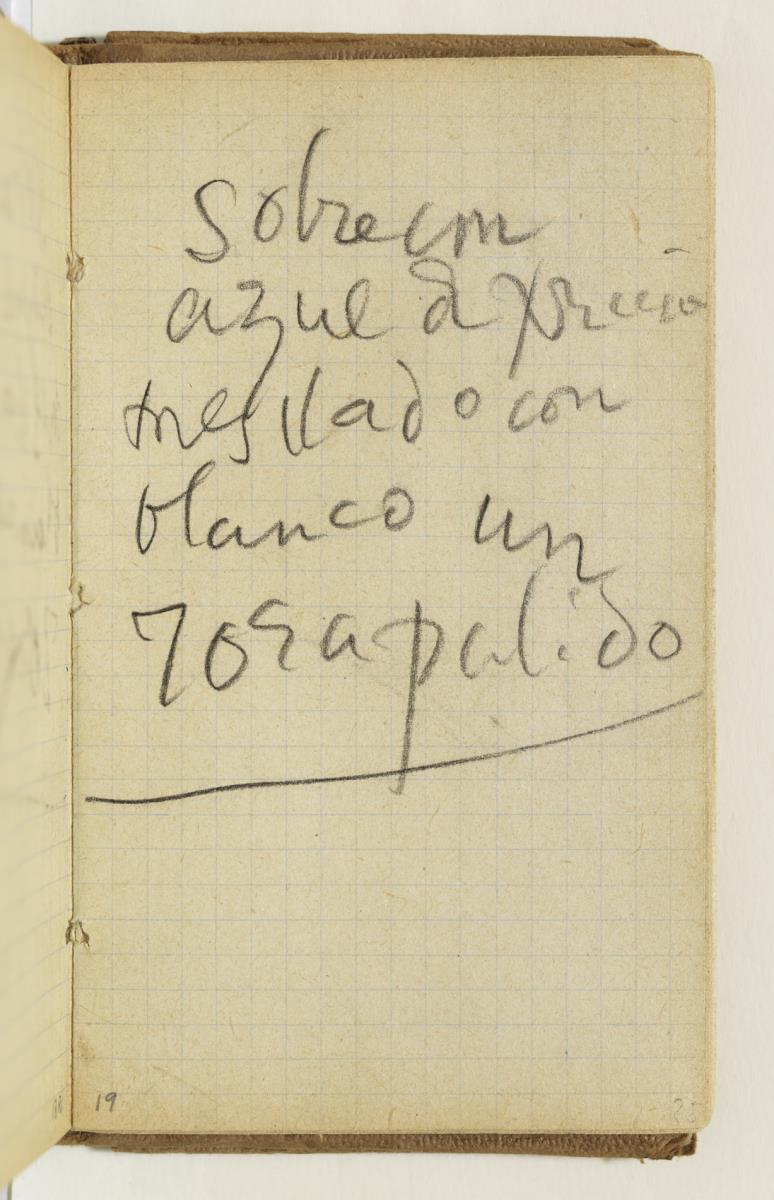 sobre un
azul de prusia
mesclado con
blanco un
rosa palido
19